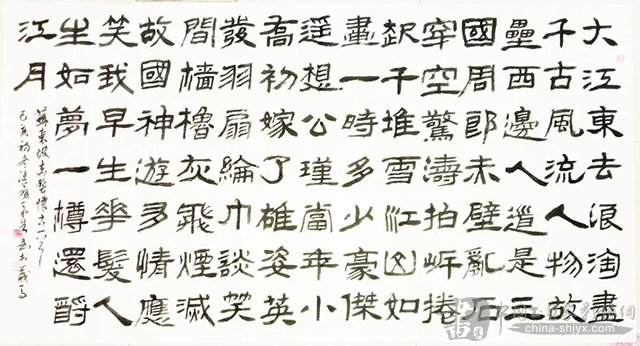 大江東去浪淘盡
千古風流人物故
壘西邊人道是三
國周郎赤壁亂石
穿空驚濤拍岸捲
起千堆雪江山如
畫一時多少豪傑
遥想公瑾當年小
喬初嫁了雄姿英
發羽扇綸巾談笑
間檣櫓灰飛煙滅
故國神游多情應
笑我早生華髮人
生如夢一樽還酹
江月
蘇東坡赤壁懷古一首
己亥初冬
china-shjyx.com